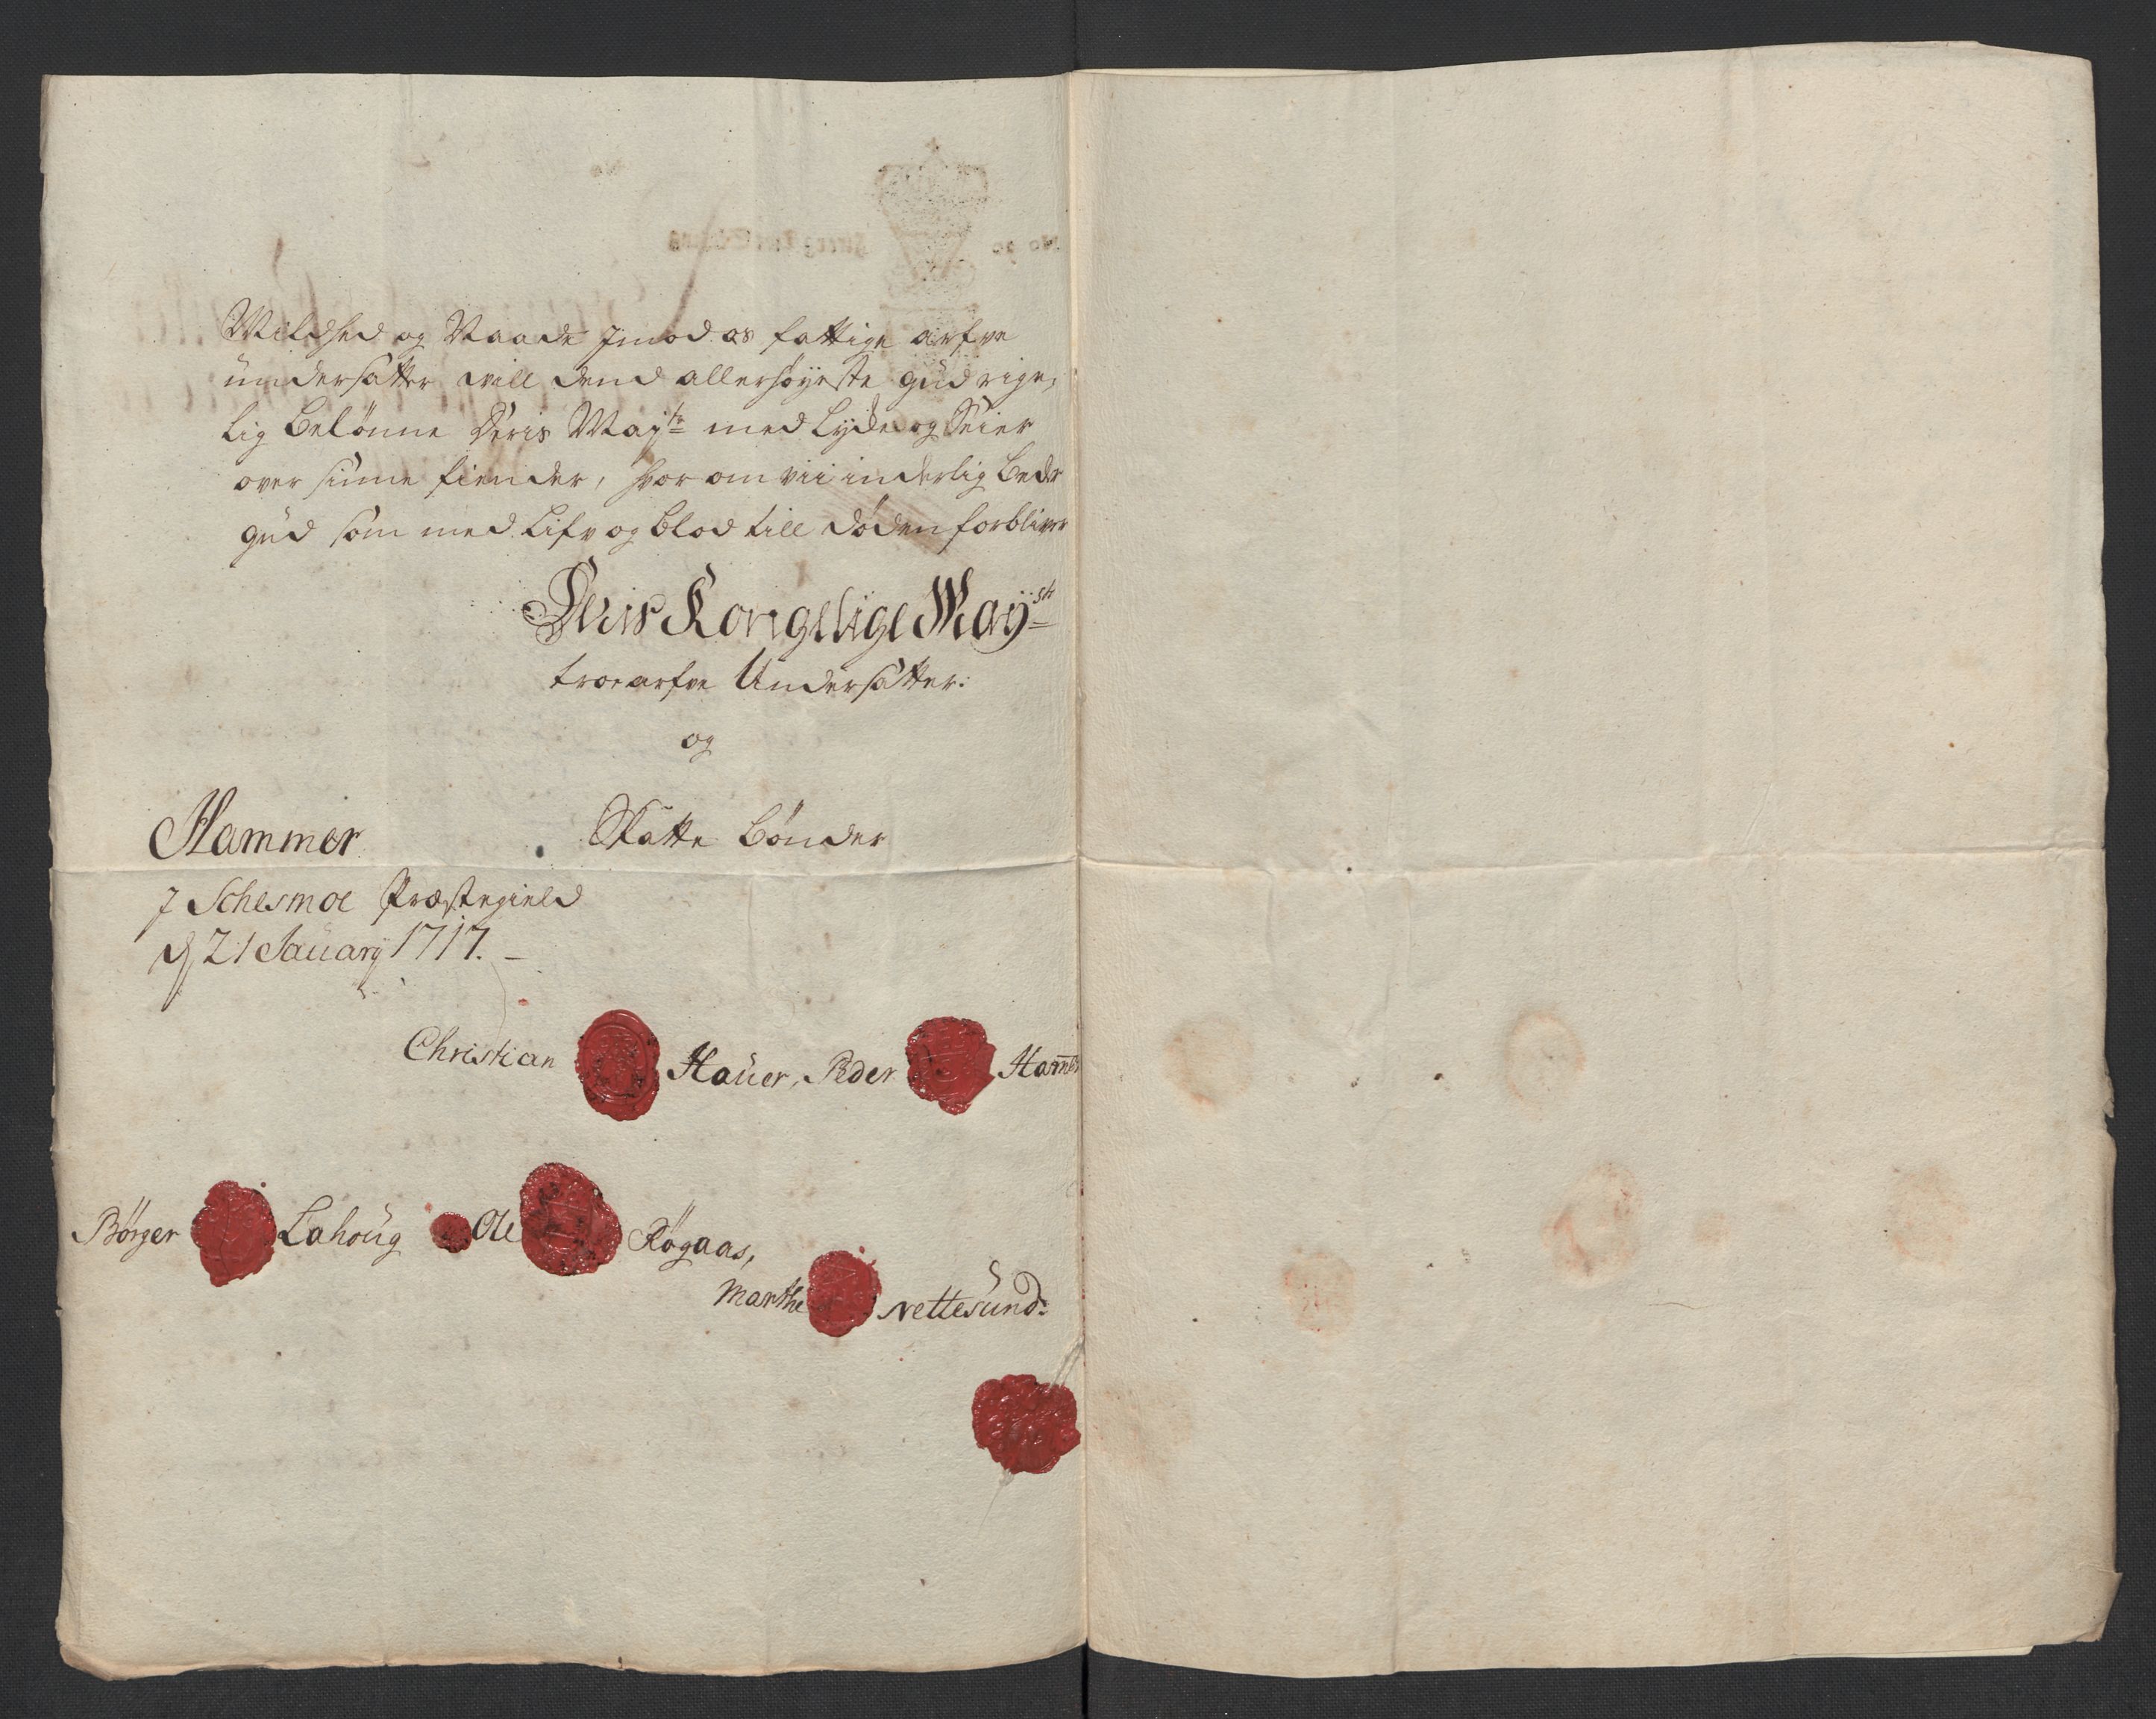 Mildhed og Naade imod os fattige arfve
undersåtter will dend allerhøyeste gud rige,
lig belønne Deris Mayᵗˢ med Lyde og Seier
over sinne fiender, hvor om vii inderlig beder
gud som med Lifv og blod till døden forbliver
Deris Kongelige Mayˢᵗˢ
troe arfve Undersåtter:
og
Hammer
Skatte bønder
J Schesmoe Præstegield
d 21 Januarÿ 1717.
Christian Hauer, Peder Ham̄er
Børger Lahoug Ole Røgaas,
Marthe Nettesund: